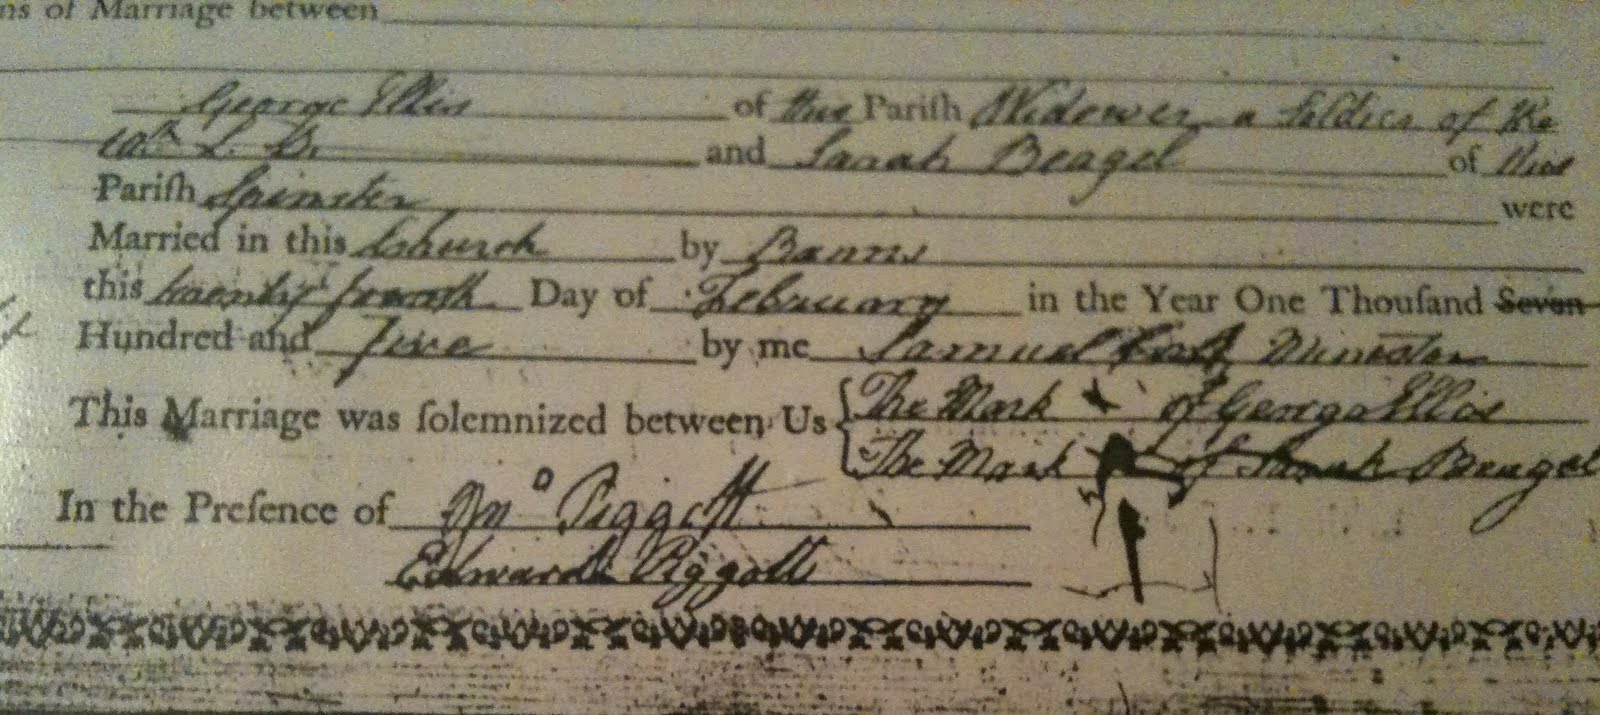 ns of Marriage between
George Ellis of this Pariſh Widower a Soldier of the
10th L. D. and Sarah Beagel of this
Pariſh Spinster were
Married in this Church by Banns
this twenty fourth Day of February in the Year One Thouſand Seven
Hundred and Five by me Samuel Minister
This Marriage was ſolemnized between Us The Mark of George Ellis
The Mark of Sarah Beagel
In the Preſence of Jno Piggott
Edward Piggott